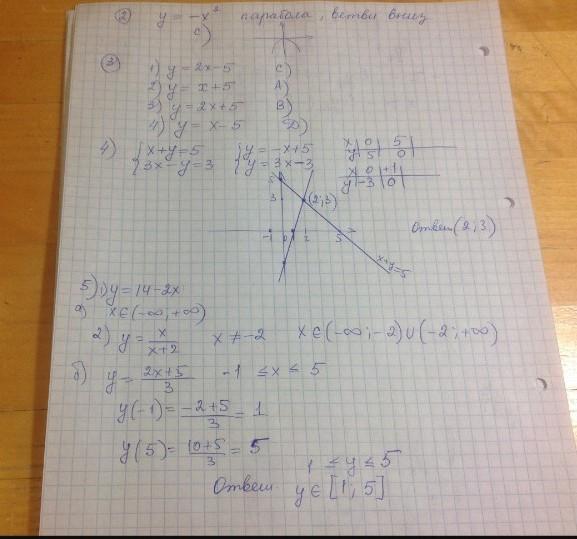 2) y = -x² парабола, ветви вниз
c)
3) 1) y = 2x-5 C)
2) y = x+5 A)
3) y = 2x+5 B)
4) y = x-5 D)
4) { x+y=5 { y=-x+5 x 0 5
3x-y=3 y=3x-3 y 5 0
x 0 +1
y -3 0
5
3 (2;3)
Ответ (2;3)
-1 0 2 5
x+y=5
5) 1) y=14-2x
a) x∈(-∞;+∞)
2) y = x/(x+2) x ≠ -2 x∈(-∞;-2)∪(-2;+∞)
б) y = (2x+5)/3 -1 ≤ x ≤ 5
y(-1) = (-2+5)/3 = 1
y(5) = (10+5)/3 = 5
1 ≤ y ≤ 5
Ответ y∈[1;5]